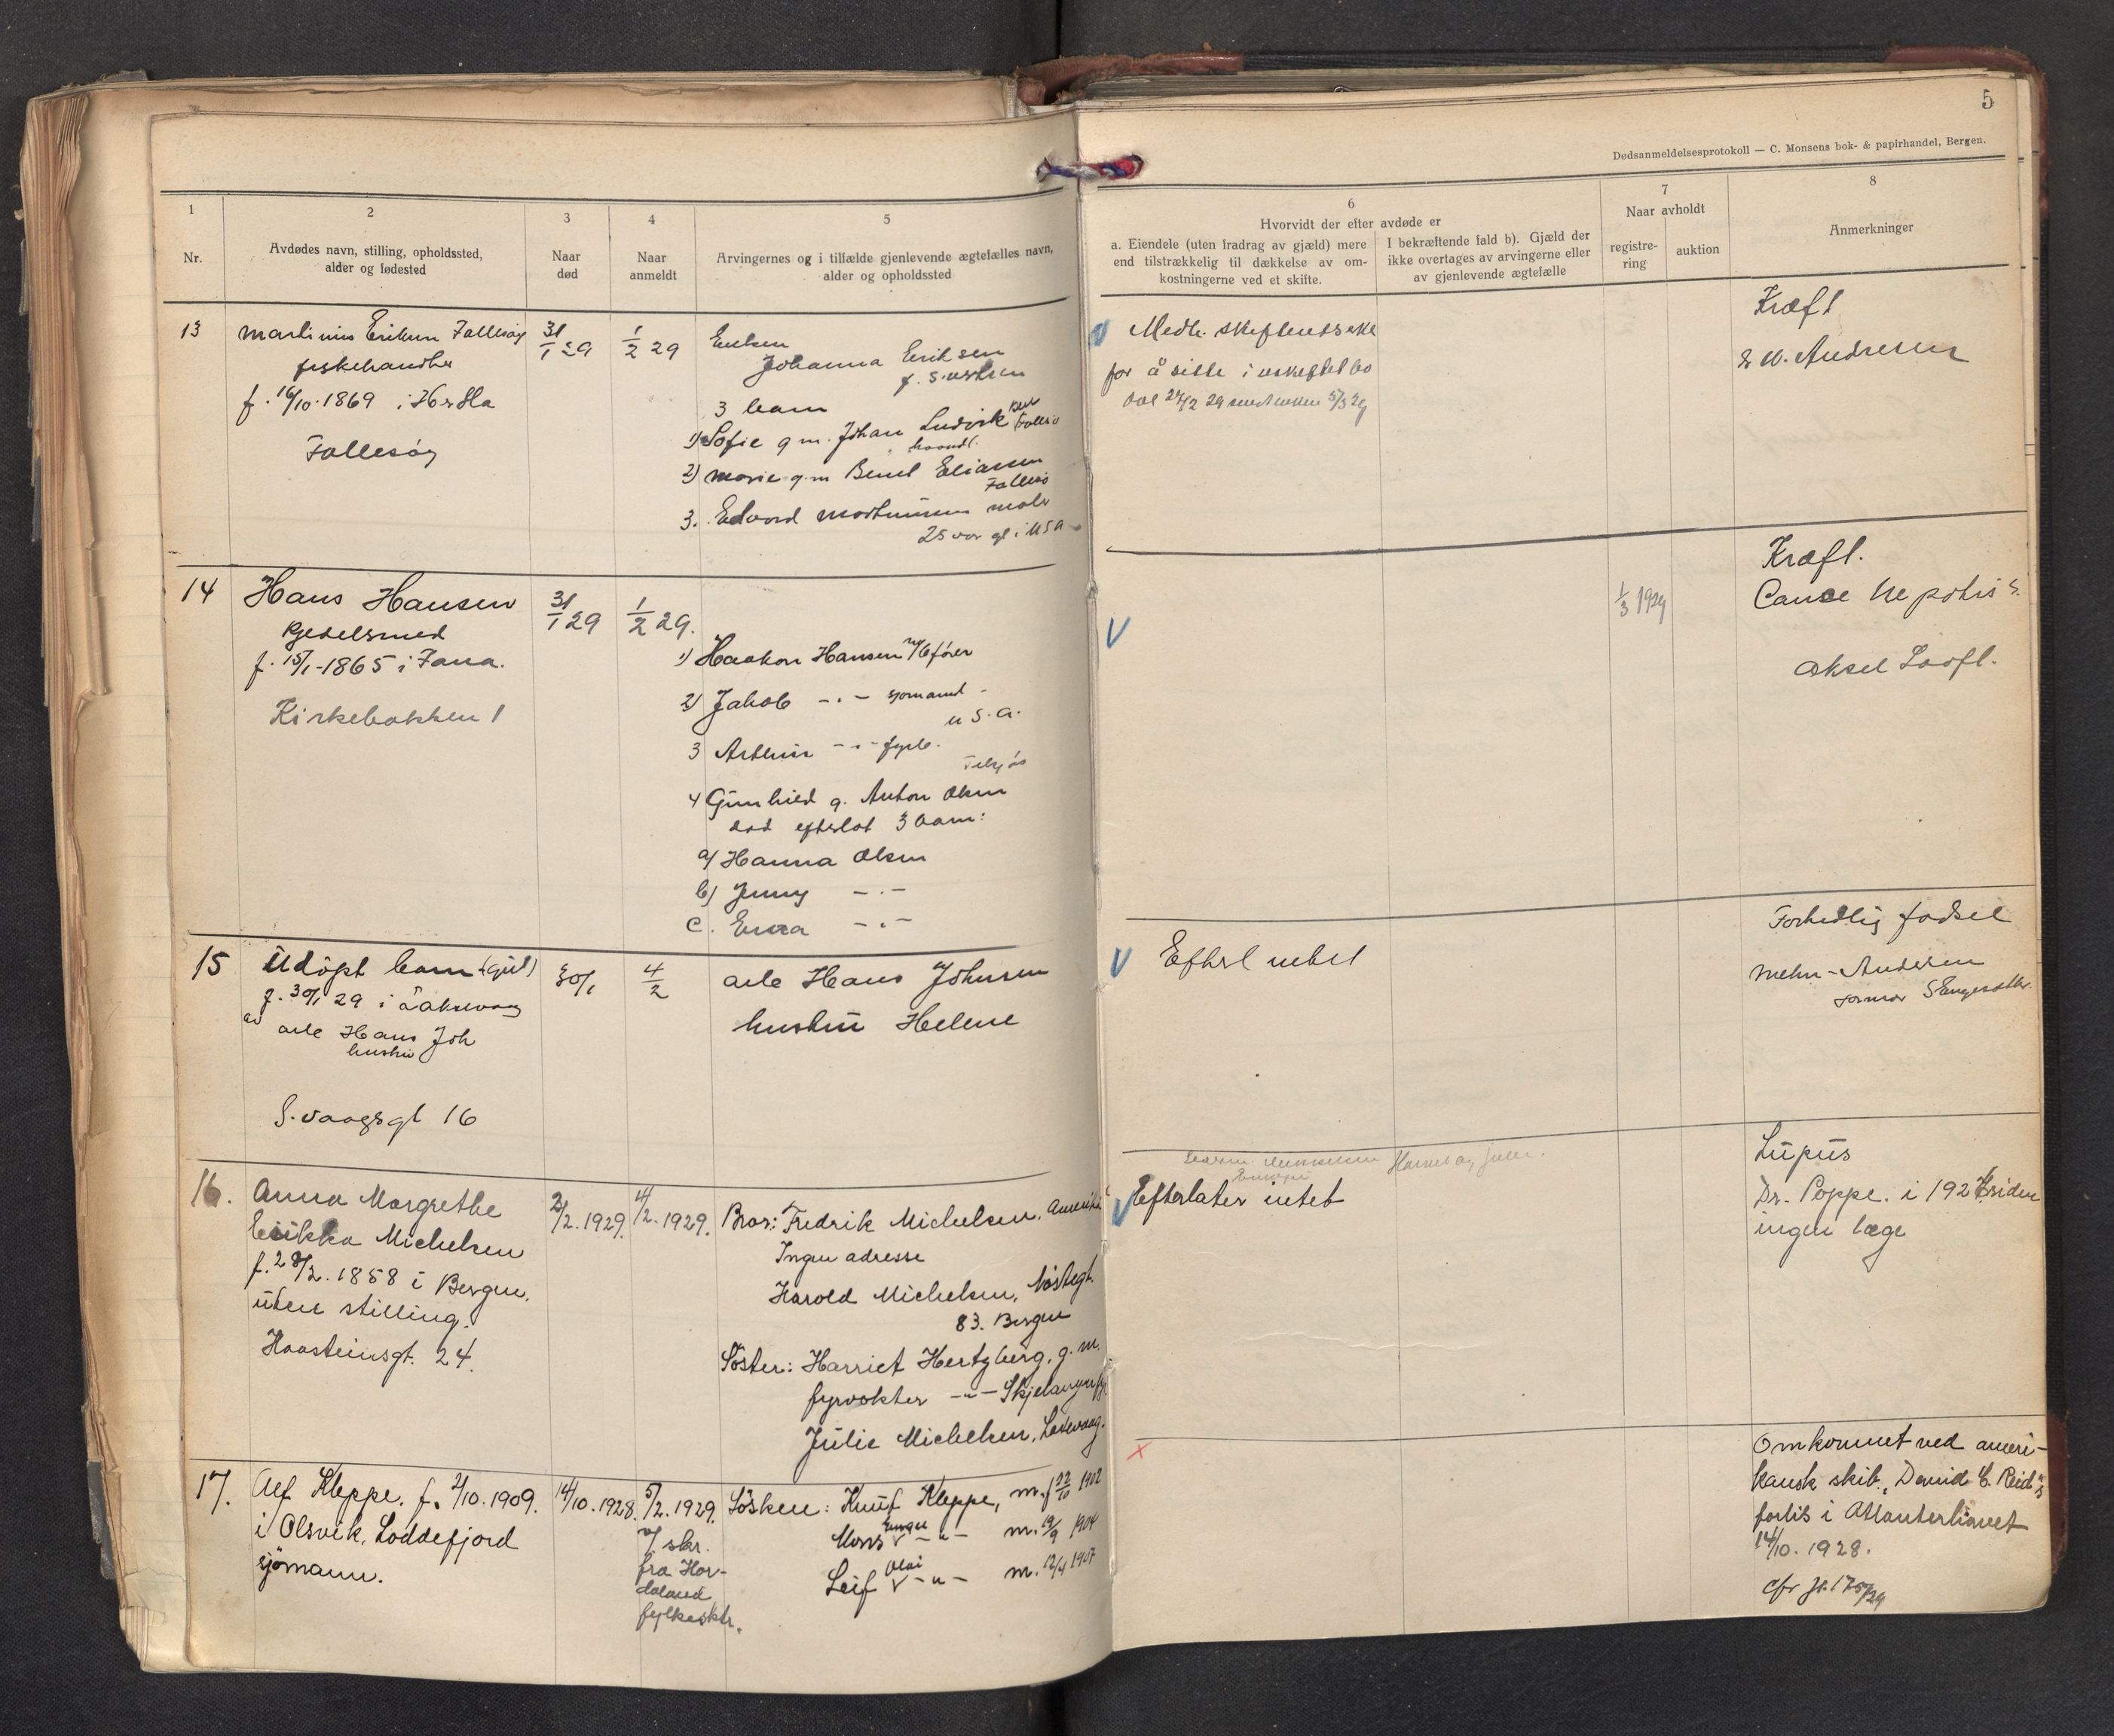 5
Dødsanmeldelsesprotokoll — C. Monsens bok- & papirhandel, Bergen.
1
Nr.
2
Avdødes navn, stilling, opholdssted,
alder og fødested
3
Naar
død
4
Naar
anmeldt
5
Arvingernes og i tilfælde gjenlevende ægtefælles navn,
alder og opholdssted
6
Hvorvidt der efter avdøde er
a. Eiendele (uten fradrag av gjæld) mere
end tilstrækkelig til dækkelse av om-
kostningerne ved et skifte.
I bekræftende fald b). Gjæld der
ikke overtages av arvingerne eller
av gjenlevende ægtefælle
7
Naar avholdt
registre-
ring
auktion
8
Anmerkninger
13
Martinus Eriksen Follesøy
fiskehandler
f. 16/10. 1869 i Herdla
Follesøy
31/1 29
1/2 29
Enken
Johanna Eriksen
f.
3 barn
1) Sofie g m. Johan Ludvik
2) Marie g. m Berent Eliassen
Follesø
3. Edvard Martinussen
25 aar gl i U S A
V
for å sitte i uskiftet bo
Kræft
Andresen
14
Hans Hansen
Kjedelsmed
f. 15/1-1865 i Fana.
Kirkebakken 1
31/1 29
1/2 29.
1) Haakon Hansen
2) Jakob -"- sjømand -
U S. A.
3 Arthur -"- fyrb.
4 Gunhild g. Anton Olsen
død efterlot 3 barn:
a) Hanna Olsen
b) Jenny -"-
c. Erna -"-
V
1/3 1929
Kræft.
Aksel Looft.
15
Udøpt barn (gut)
f. 30/1 29 i Laksevaag
av arb Hans Joh
hustru
S. vaagsgt 16
30/1
4/2
arb Hans Johnsen
hustru Helene
V
Efterl intet
Forhedlig fødsel
Andersen
16.
Anna Margrethe
Erikka Michelsen
f. 28/2. 1858 i Bergen.
uten stilling.
Haasteinsgt. 24.
2/2. 1929.
4/2. 1929.
Bror: Fredrik Michelsen, Amerika
Ingen adresse
Harold Michelsen, Nøstegt.
83. Bergen
Søster: Harriet Hertzberg, g. m.
fyrvokter -"- Skjelanger fyr
Julie Michelsen, Laksevaag.
V
Efterlater intet
Lupus
Dr. Poppe. i 192 siden
ingen læge
17.
Alf Kleppe. f. 2/10. 1909.
i Olsvik, Loddefjord
sjømann.
14/10. 1928.
5/2. 1929.
v/ skr.
fra Hor-
daland
fylkesktr.
Søsken: Knut Kleppe, m. f 22/10 1902
Mons -"- m. 19/9 1904
Leif Olai -"- m. 12/4 1907
X
Omkommet ved ameri-
kansk skib. "David C. Reid"s
forlis i Atlanterhavet
14/10. 1928.
cfr jr. 175/29